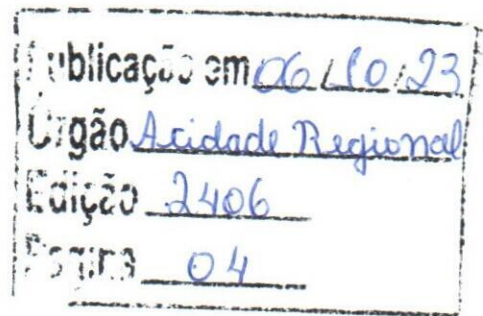 Publicação em 06/10/23
Órgão Acidade Regional
Edição 2406
Pagina 04